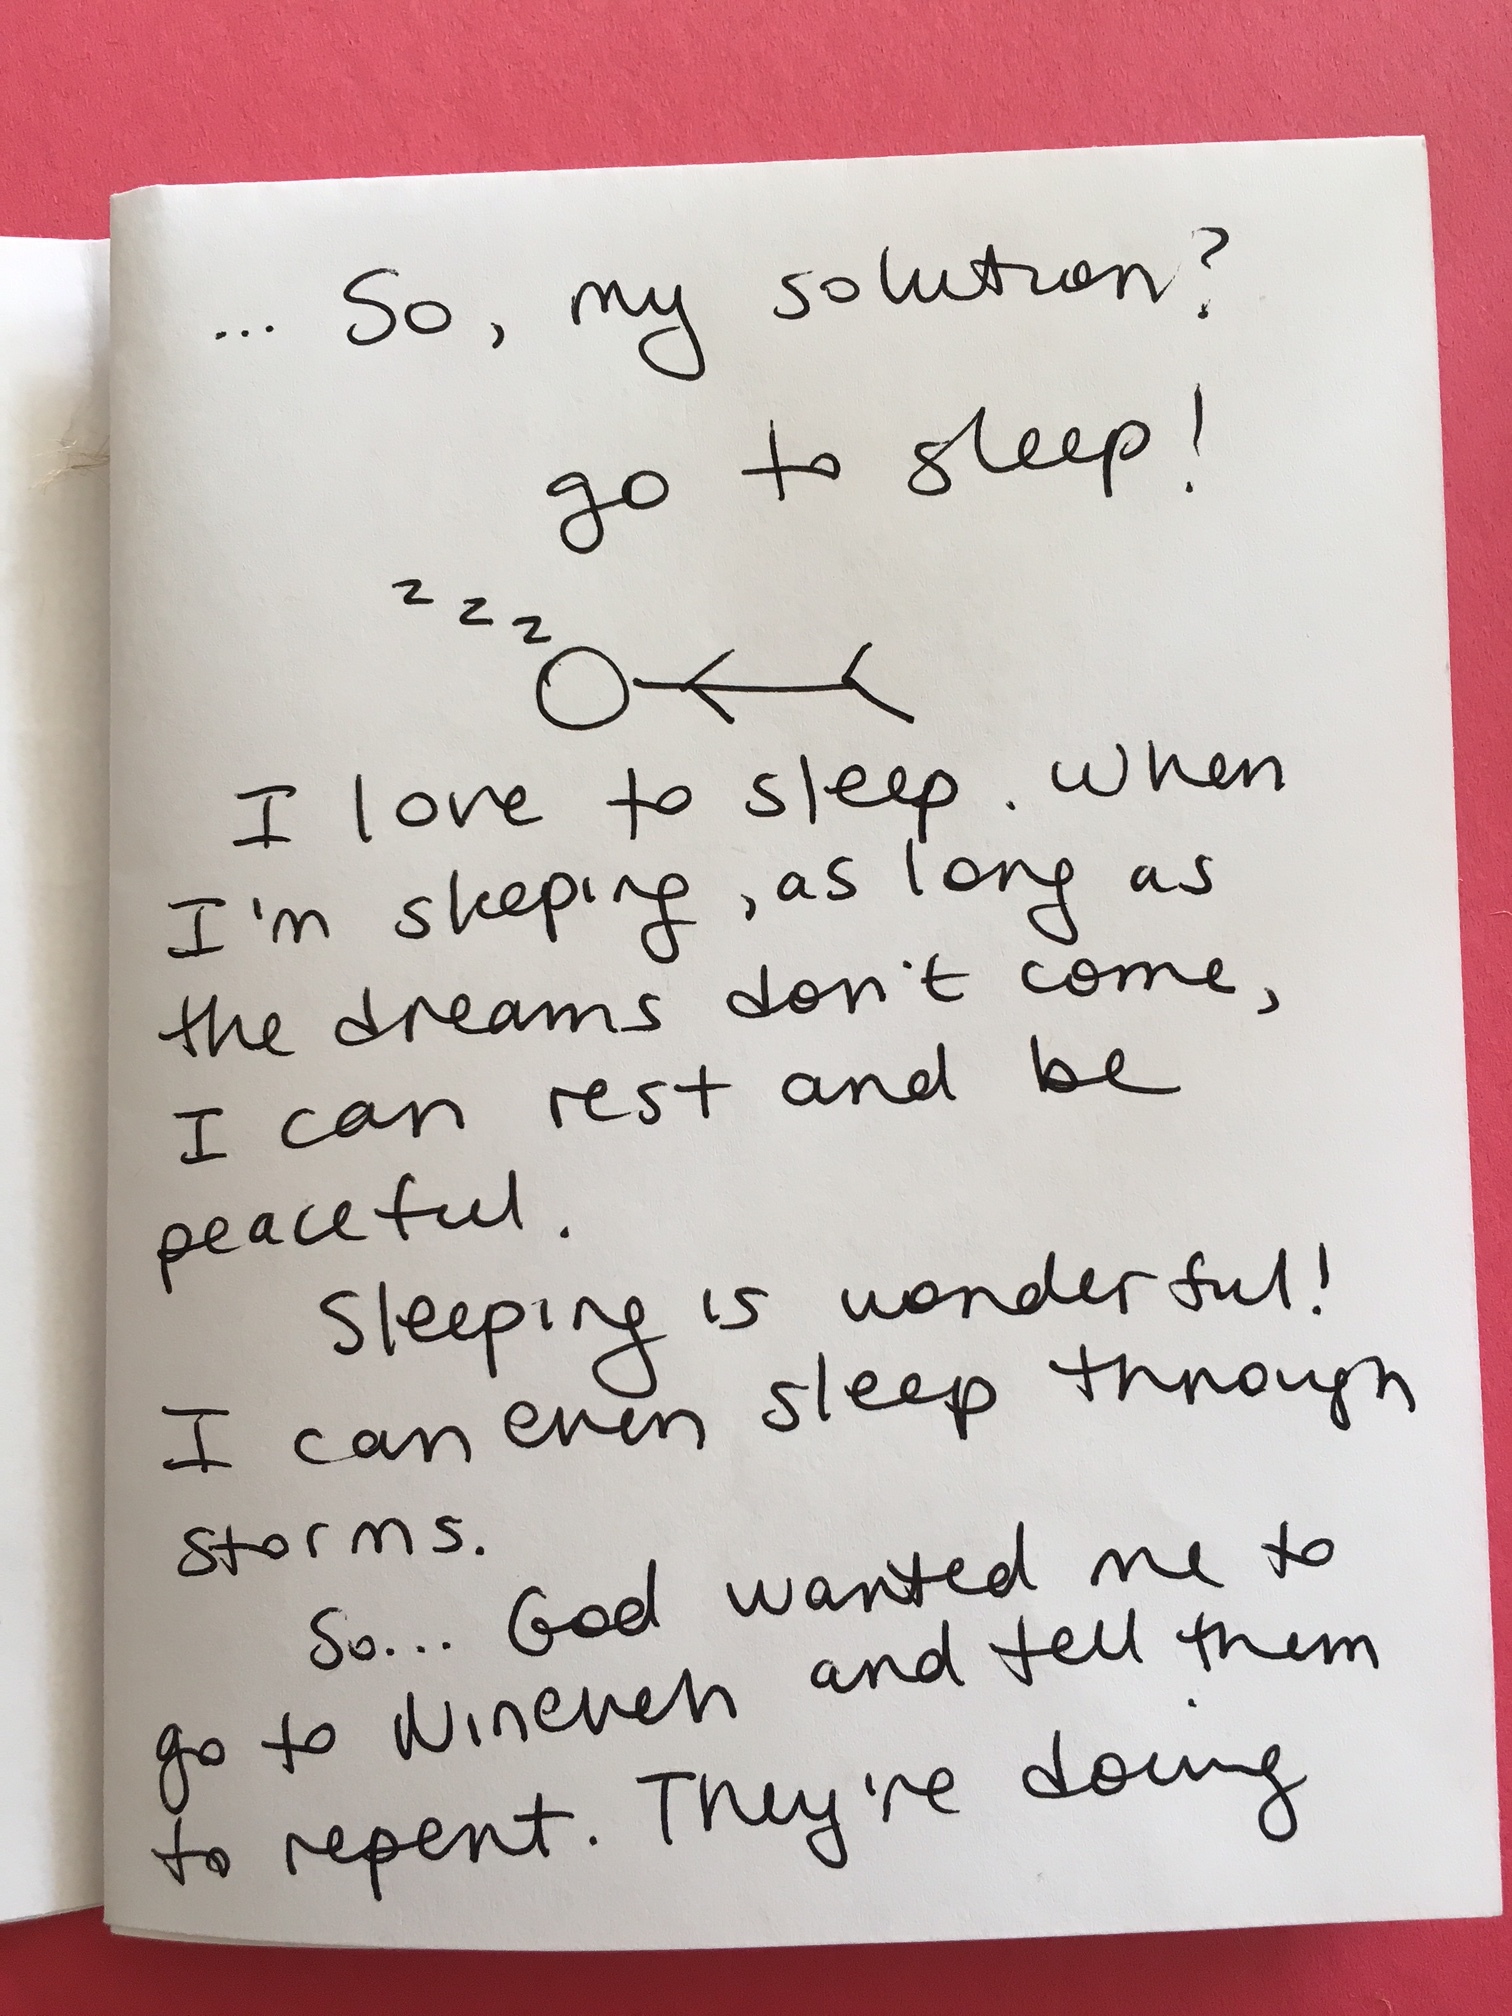 ... So, my solution?
go to sleep!
z z z
I love to sleep. When
I'm sleeping, as long as
the dreams don't come,
I can rest and be
peaceful.
Sleeping is wonderful!
I can even sleep through
storms.
So... God wanted me to
go to Nineveh and tell them
to repent. They're doing